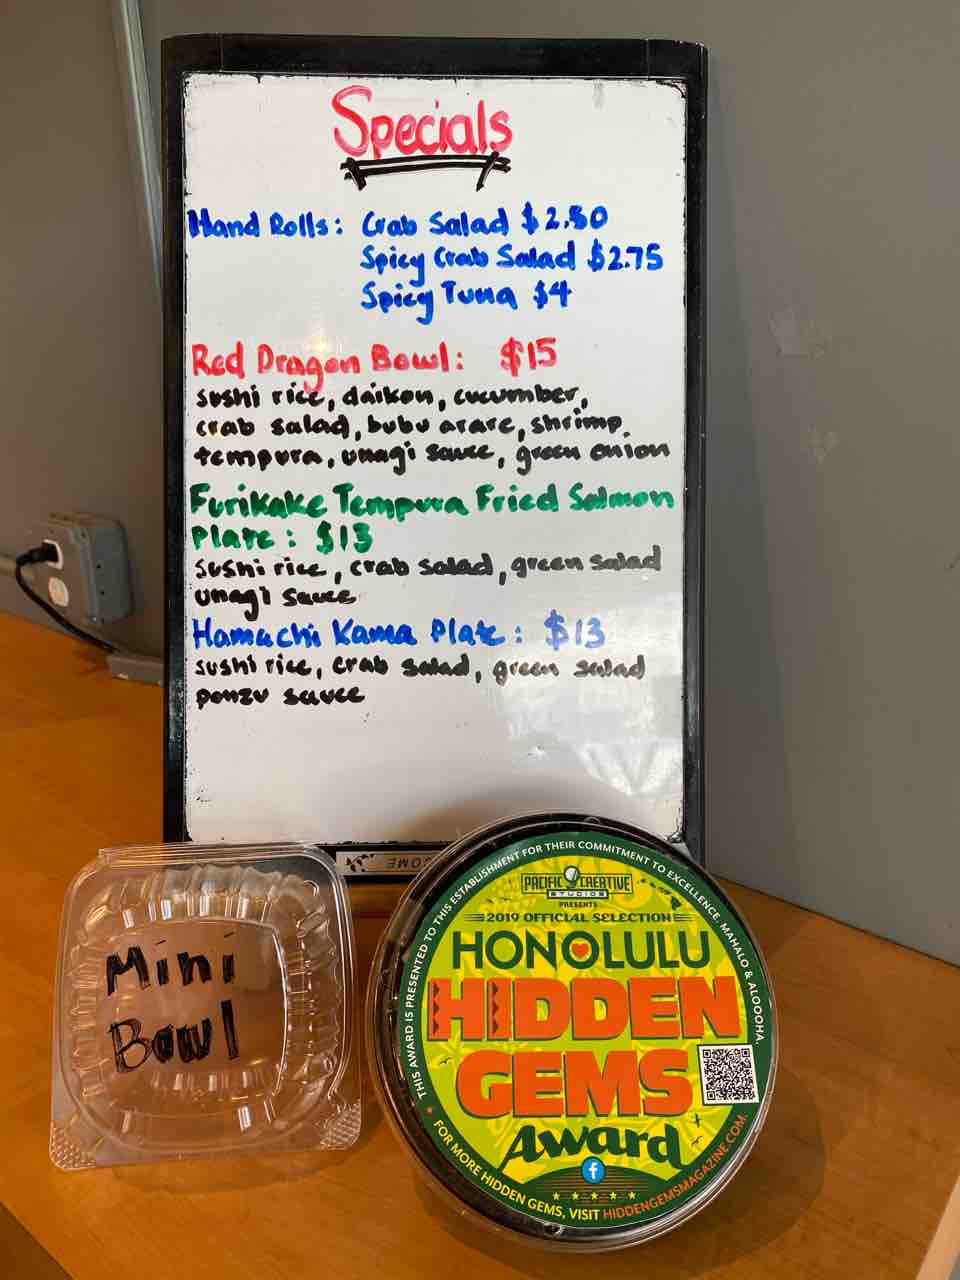 Specials
Hand Rolls: Crab Salad $2.50
Spicy Crab Salad $2.75
Spicy Tuna $4
Red Dragon Bowl: $15
sushi rice, daikon, cucumber,
crab salad, bubu arare, shrimp
tempura, unagi sauce, green onion
Furikake Tempura Fried Salmon
Plate: $13
sushi rice, crab salad, green salad
unagi sauce
Hamachi Kama Plate: $13
sushi rice, crab salad, green salad
ponzu sauce
Mini
Bowl
THIS AWARD IS PRESENTED TO THIS ESTABLISHMENT FOR THEIR COMMITMENT TO EXCELLENCE. MAHALO & ALOOOHA.
PACIFIC CREATIVE
STUDIOS
PRESENTS
2019 OFFICIAL SELECTION
HONOLULU
HIDDEN
GEMS
Award
f
FOR MORE HIDDEN GEMS, VISIT HIDDENGEMSMAGAZINE.COM.